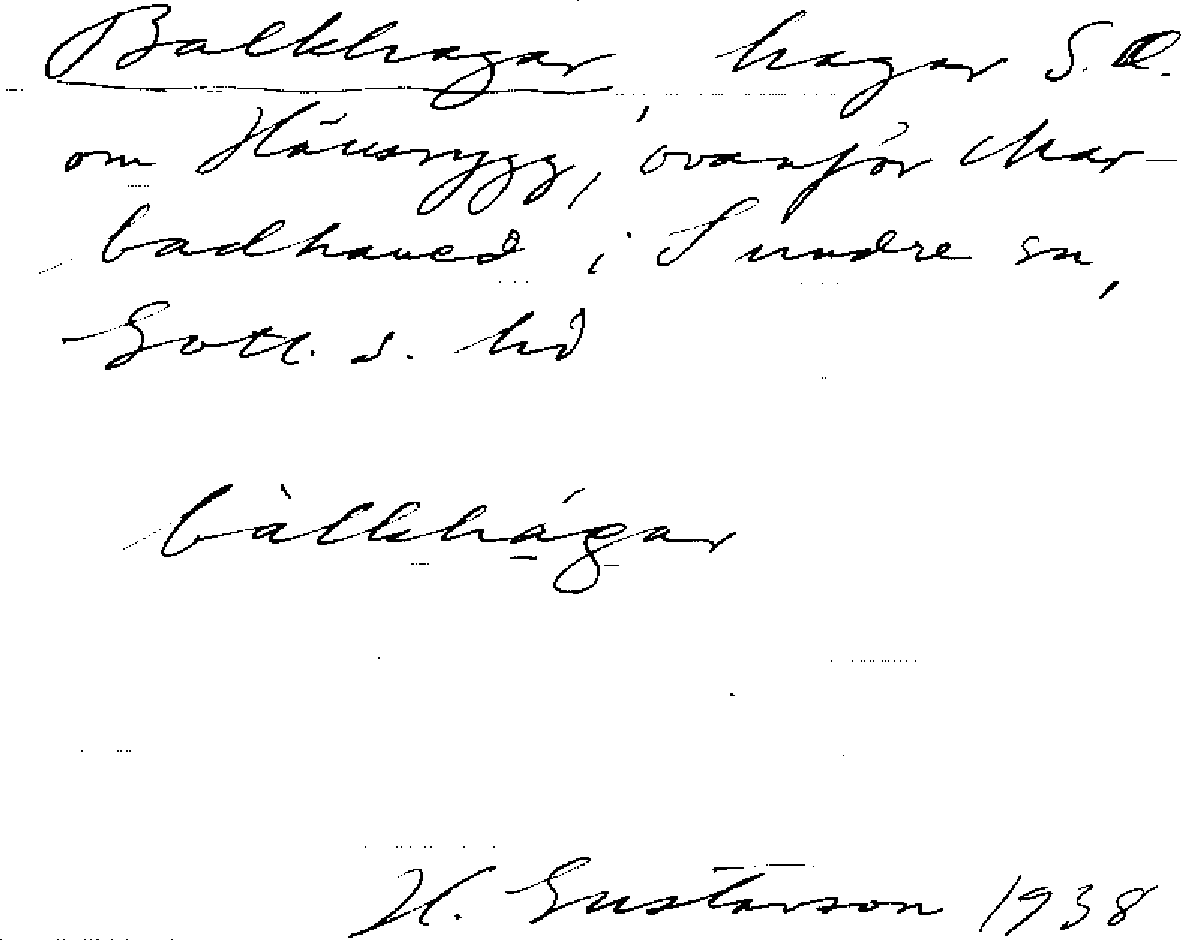 Balkhagar, hagar S.O.
om ovanför Mar-
badhaued i Sundre sn,
Gotl. s. hd
bàlkhágar
H. Gustavson 1938